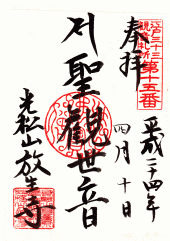 江戸三十三
観音札所
第十五番
奉拝
平成二十四年
四月十日
聖觀世音
光松山放生寺